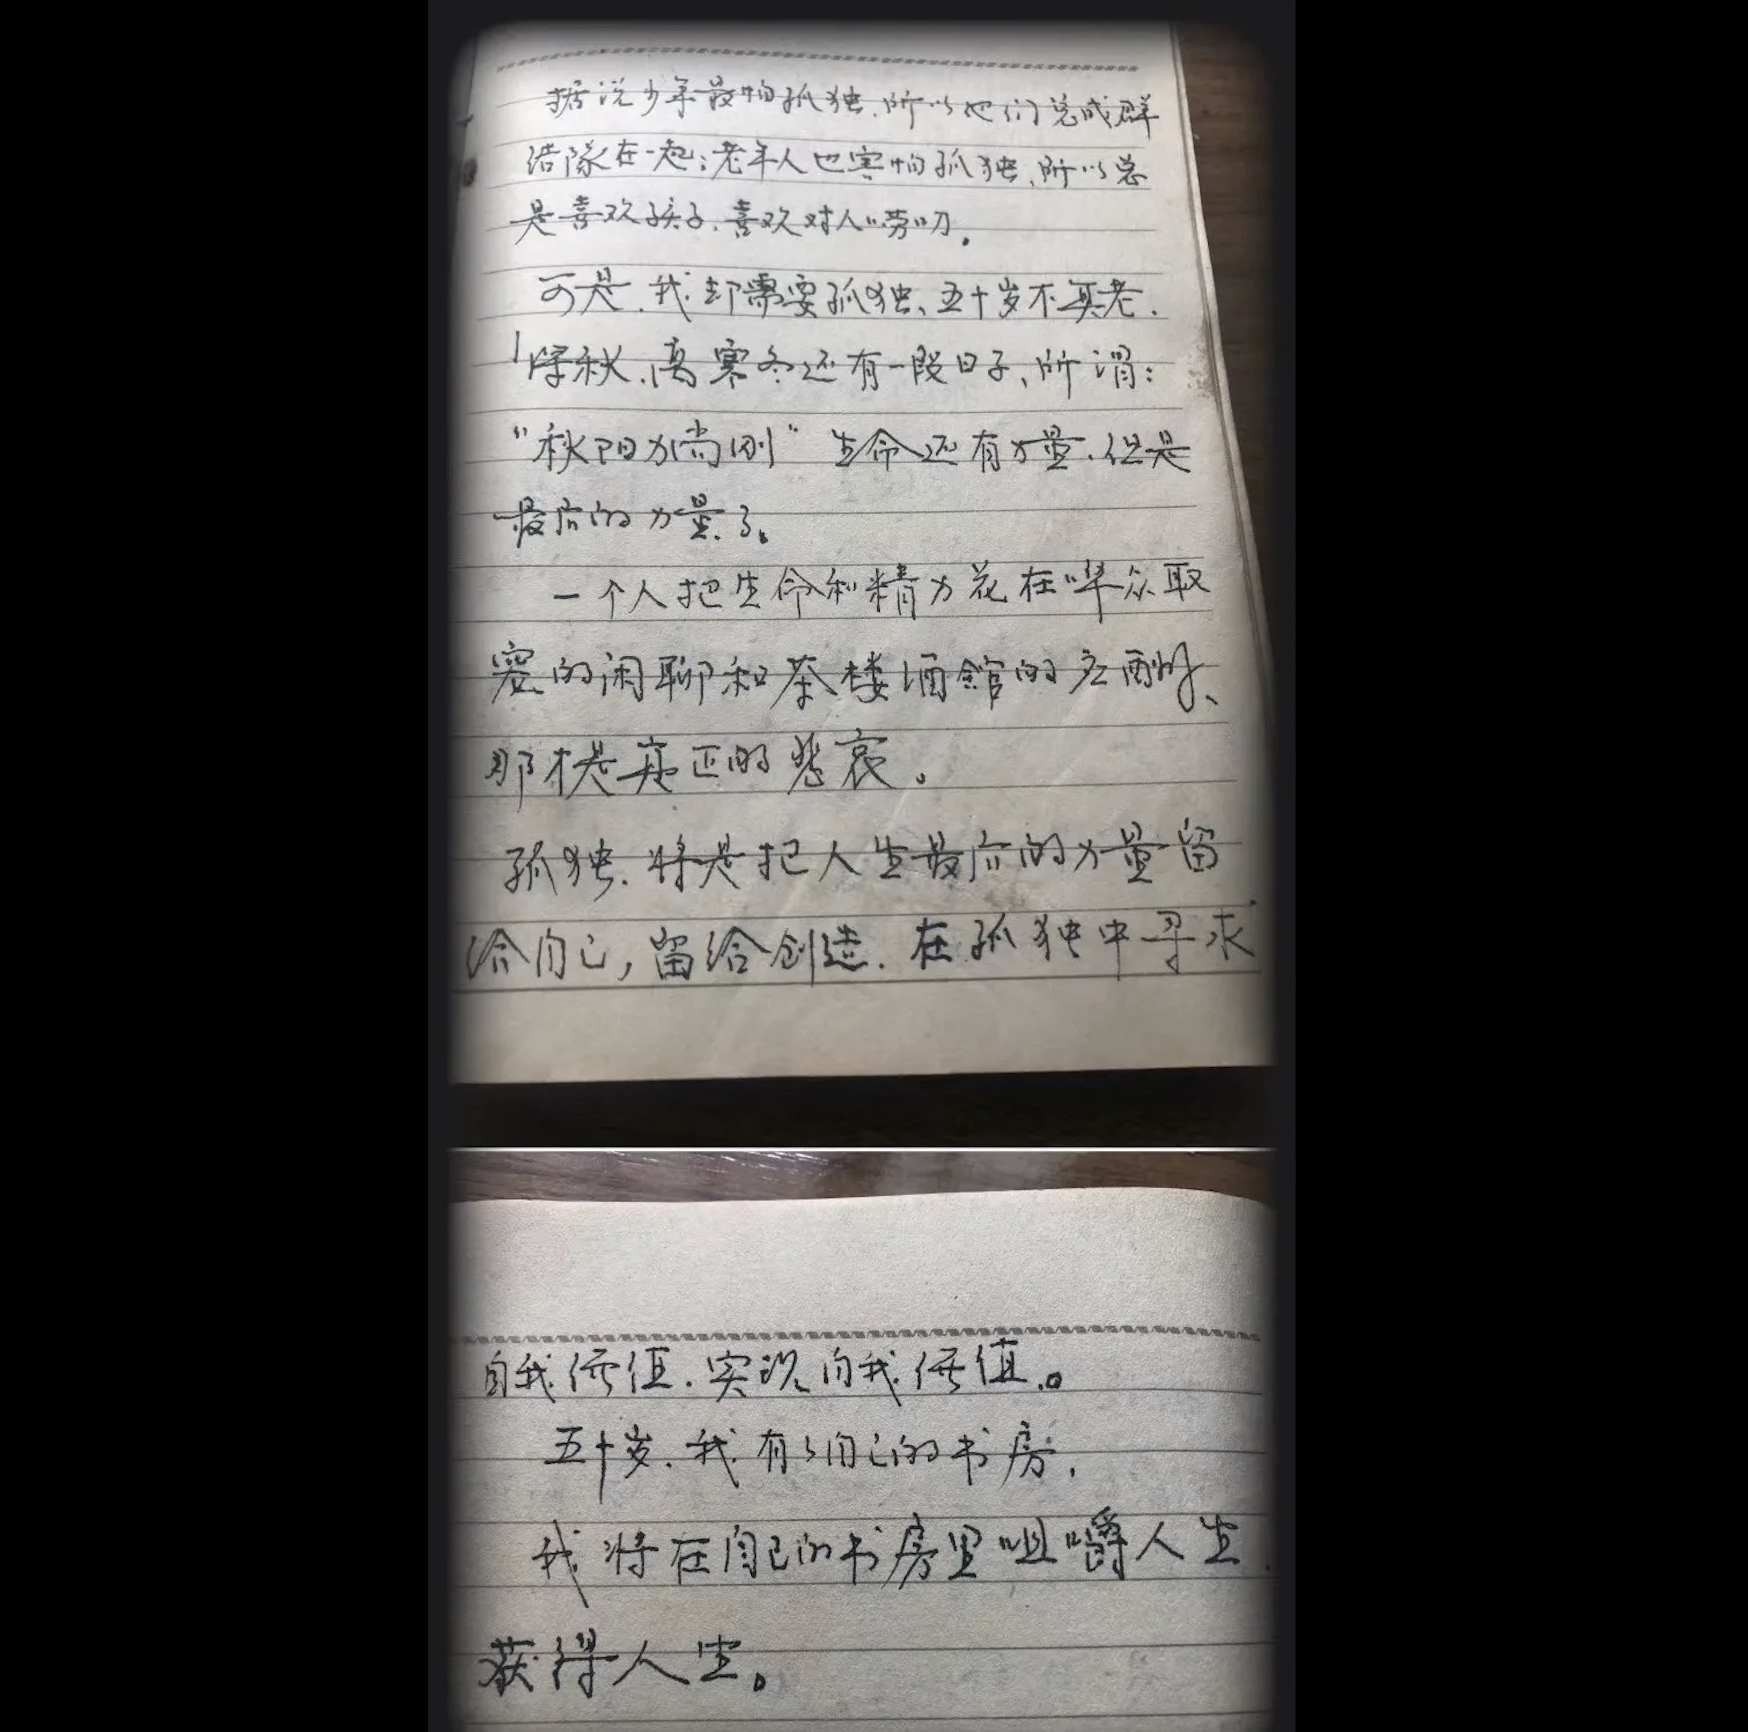 据说少年最怕孤独，所以他们总成群
结隊在一起；老年人也害怕孤独，所以总
是喜欢孩子，喜欢对人唠叨。
可是，我却需要孤独、五十岁不算老，
秋，离寒冬还有一段日子、所谓：
“秋阳力尚刚”生命还有力量，但是
最后的力量了。
一个人把生命和精力花在哗众取
宠的闲聊和茶楼酒館的应酬、
那才是真正的悲哀。
孤独，将是把人生最后的力量留
给自己，留给创造，在孤独中寻求
自我價值，实现自我價值。
五十岁，我有了自己的书房，
我将在自己的书房里咀嚼人生，
获得人生。